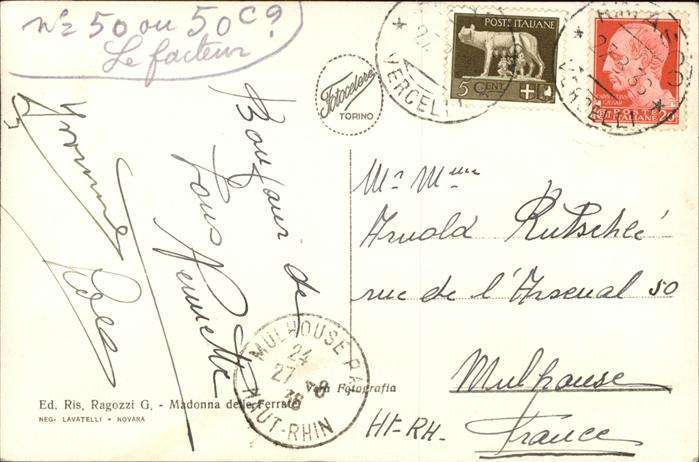 n° 50 ou 50 c?
Le facteur
Bonjour de
tous
Yvonne
POSTE ITALIANE
5 CENT.
VERCELLI
POSTE ITALIANE
20
VERCELLI
Fotocelere
TORINO
Mr Mme
Arnold Rutschlé
rue de l'Arsenal 50
Mulhouse
Ht-RH-
France
MULHOUSE
24
27 -8
36
HAUT-RHIN
Vera Fotografia
Ed. Ris. Ragozzi G. - Madonna delle Ferrate
NEG. LAVATELLI - NOVARA